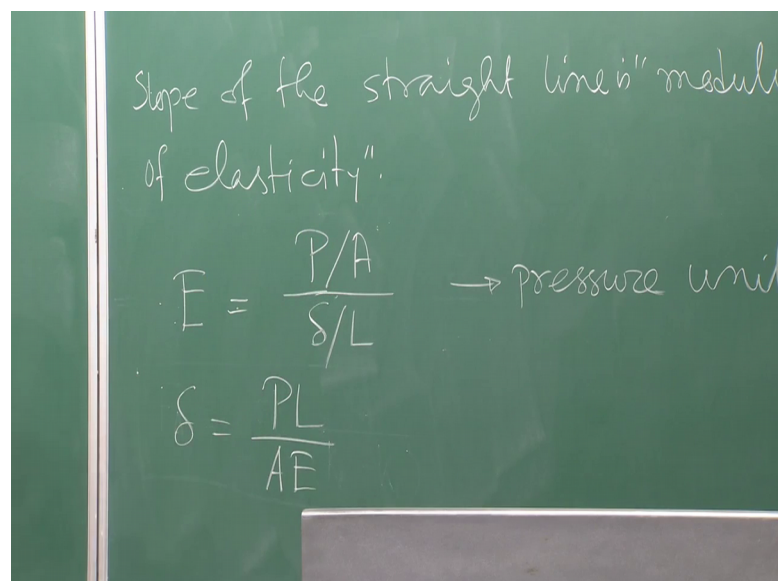 Slope of the straight line is "modulu
of elasticity".
E = P/A / δ/L → pressure unit
δ = PL / AE